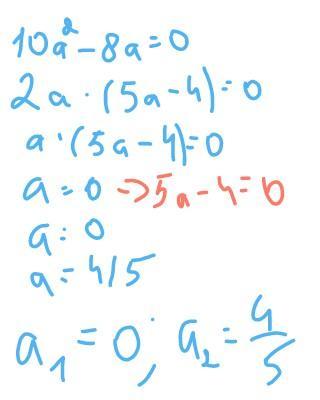 10a² - 8a = 0
2a · (5a - 4) = 0
a · (5a - 4) = 0
a = 0 -> 5a - 4 = 0
a = 0
a = 4/5
a₁ = 0; a₂ = 4/5